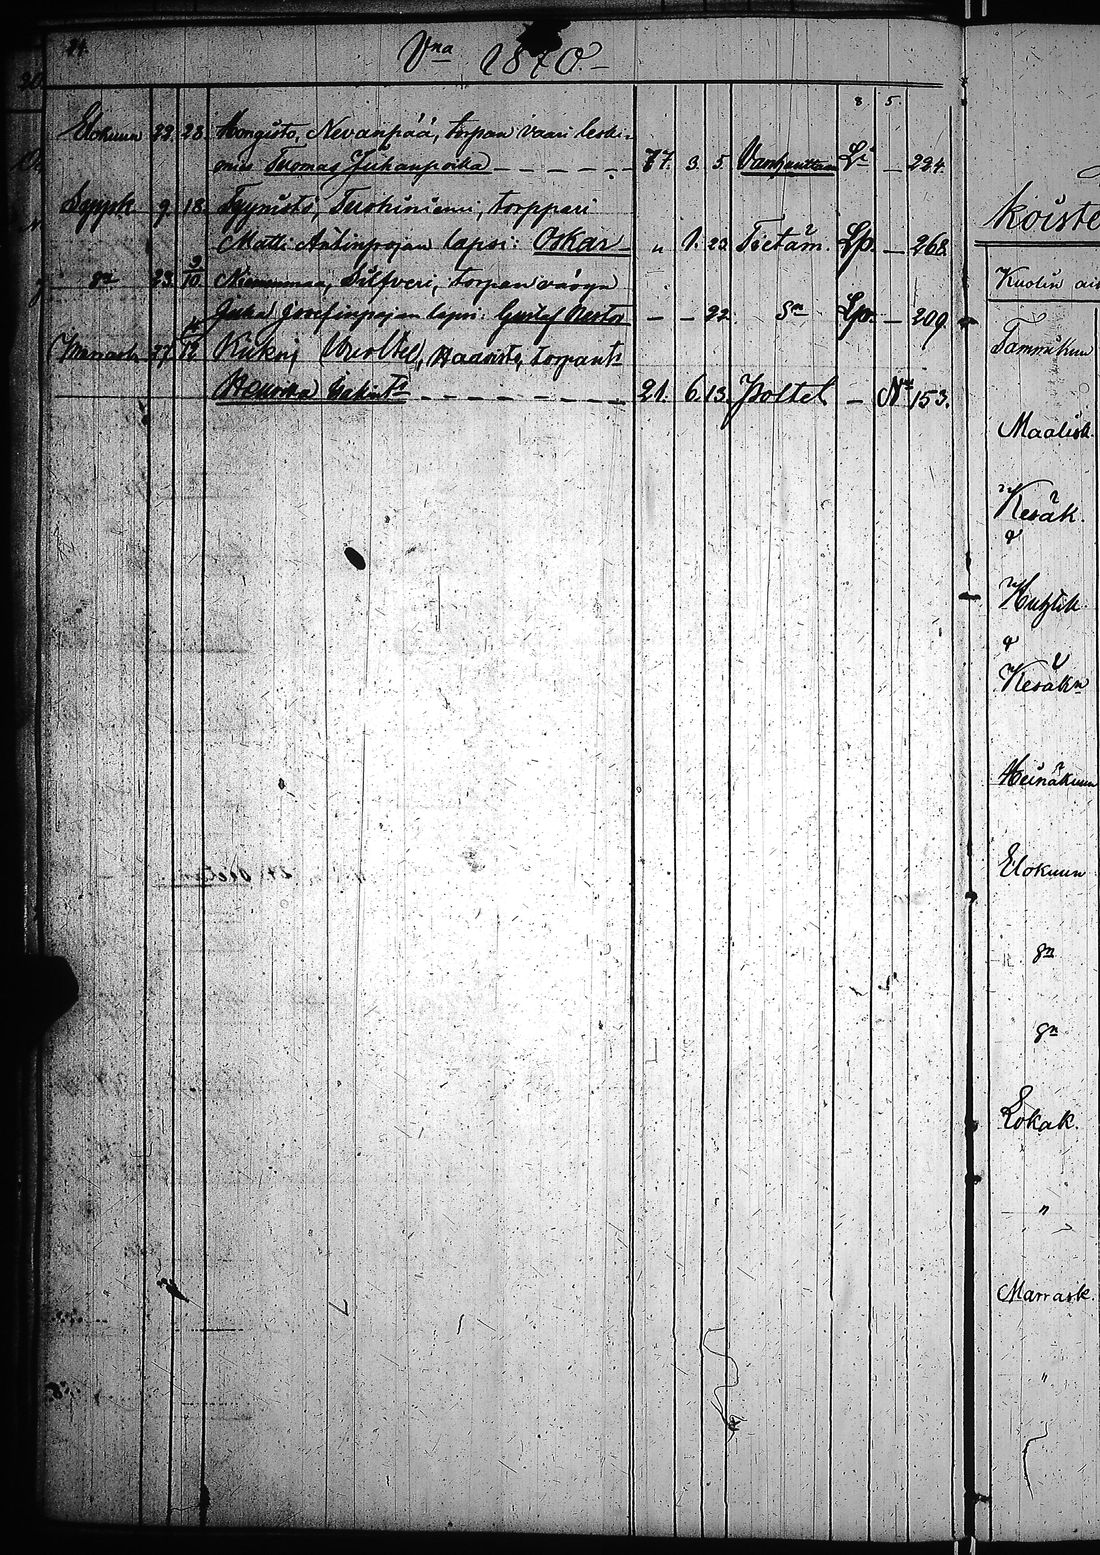 24.
Vna 1870.
8 5.
Elokuun 23. 28. Hongisto, Nevanpää, torpan vaari leski-
mies Tuomas Juhanpoika 77. 3. 5. Vanhuuttaan Ls — 224.
Syysk 9. 18. Tyynistö, torppari
Matti Antinpojan lapsi: Oskar „ 1. 22. Tietäm. Lp. — 268.
sn 23. 2/10 Niemenmaa, Silfveri, torpan vävyn
Juha Josefinpojan lapsi: Gustaf Nestor — — 22. sn Lp. — 209.
Marrask. 27. 4/12 Haavisto, torpant:
Henrika 21. 6. 13. Polttet — Nt 153.
koiste
Kuolin ai
Tammikuun
Maalisk.
Kesäk.
Huhtik
Kesäkn
Heinäkuun
Elokuun
sn
sn
Lokak.
„
Marrask.
„